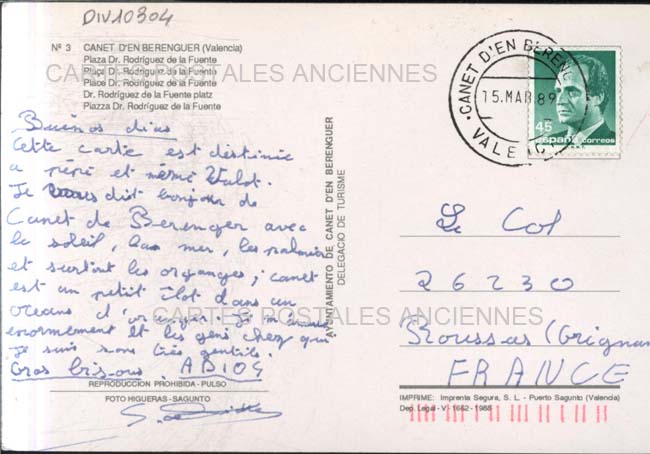 DIV10304
Nº 3 CANET D'EN BERENGUER (Valencia)
Plaza Dr. Rodríguez de la Fuente
Plaça Dr. Rodríguez de la Fuente
Place Dr. Rodríguez de la Fuente
Dr. Rodríguez de la Fuente platz
Piazza Dr. Rodríguez de la Fuente
CARTES POSTALES ANCIENNES
Buenos dias
Cette carte est destinée
a pépé et mémé
Je dist bonjour de
Canet de Berenger avec
le soleil, la mer, les palmiers
et surtout les organges; canet
est un petit îlot dans un
oceans d'oranger. Je m'amuse
enormement et les gens chez qui
je suis sons très gentils.
Gros bisous. ADIOS
REPRODUCCION PROHIBIDA - PULSO
FOTO HIGUERAS - SAGUNTO
AYUNTAMIENTO DE CANET D'EN BERENGUER
DELEGACIO DE TURISME
CANET D'EN BERENG
15.MAR.89
VALENC
45
españa correos
Le Col
26230
Roussas (Grignan
FRANCE
CARTES POSTALES ANCIENNES
IMPRIME: Imprenta Segura, S. L. - Puerto Sagunto (Valencia)
Dep. Legal - V - 1662 - 1988